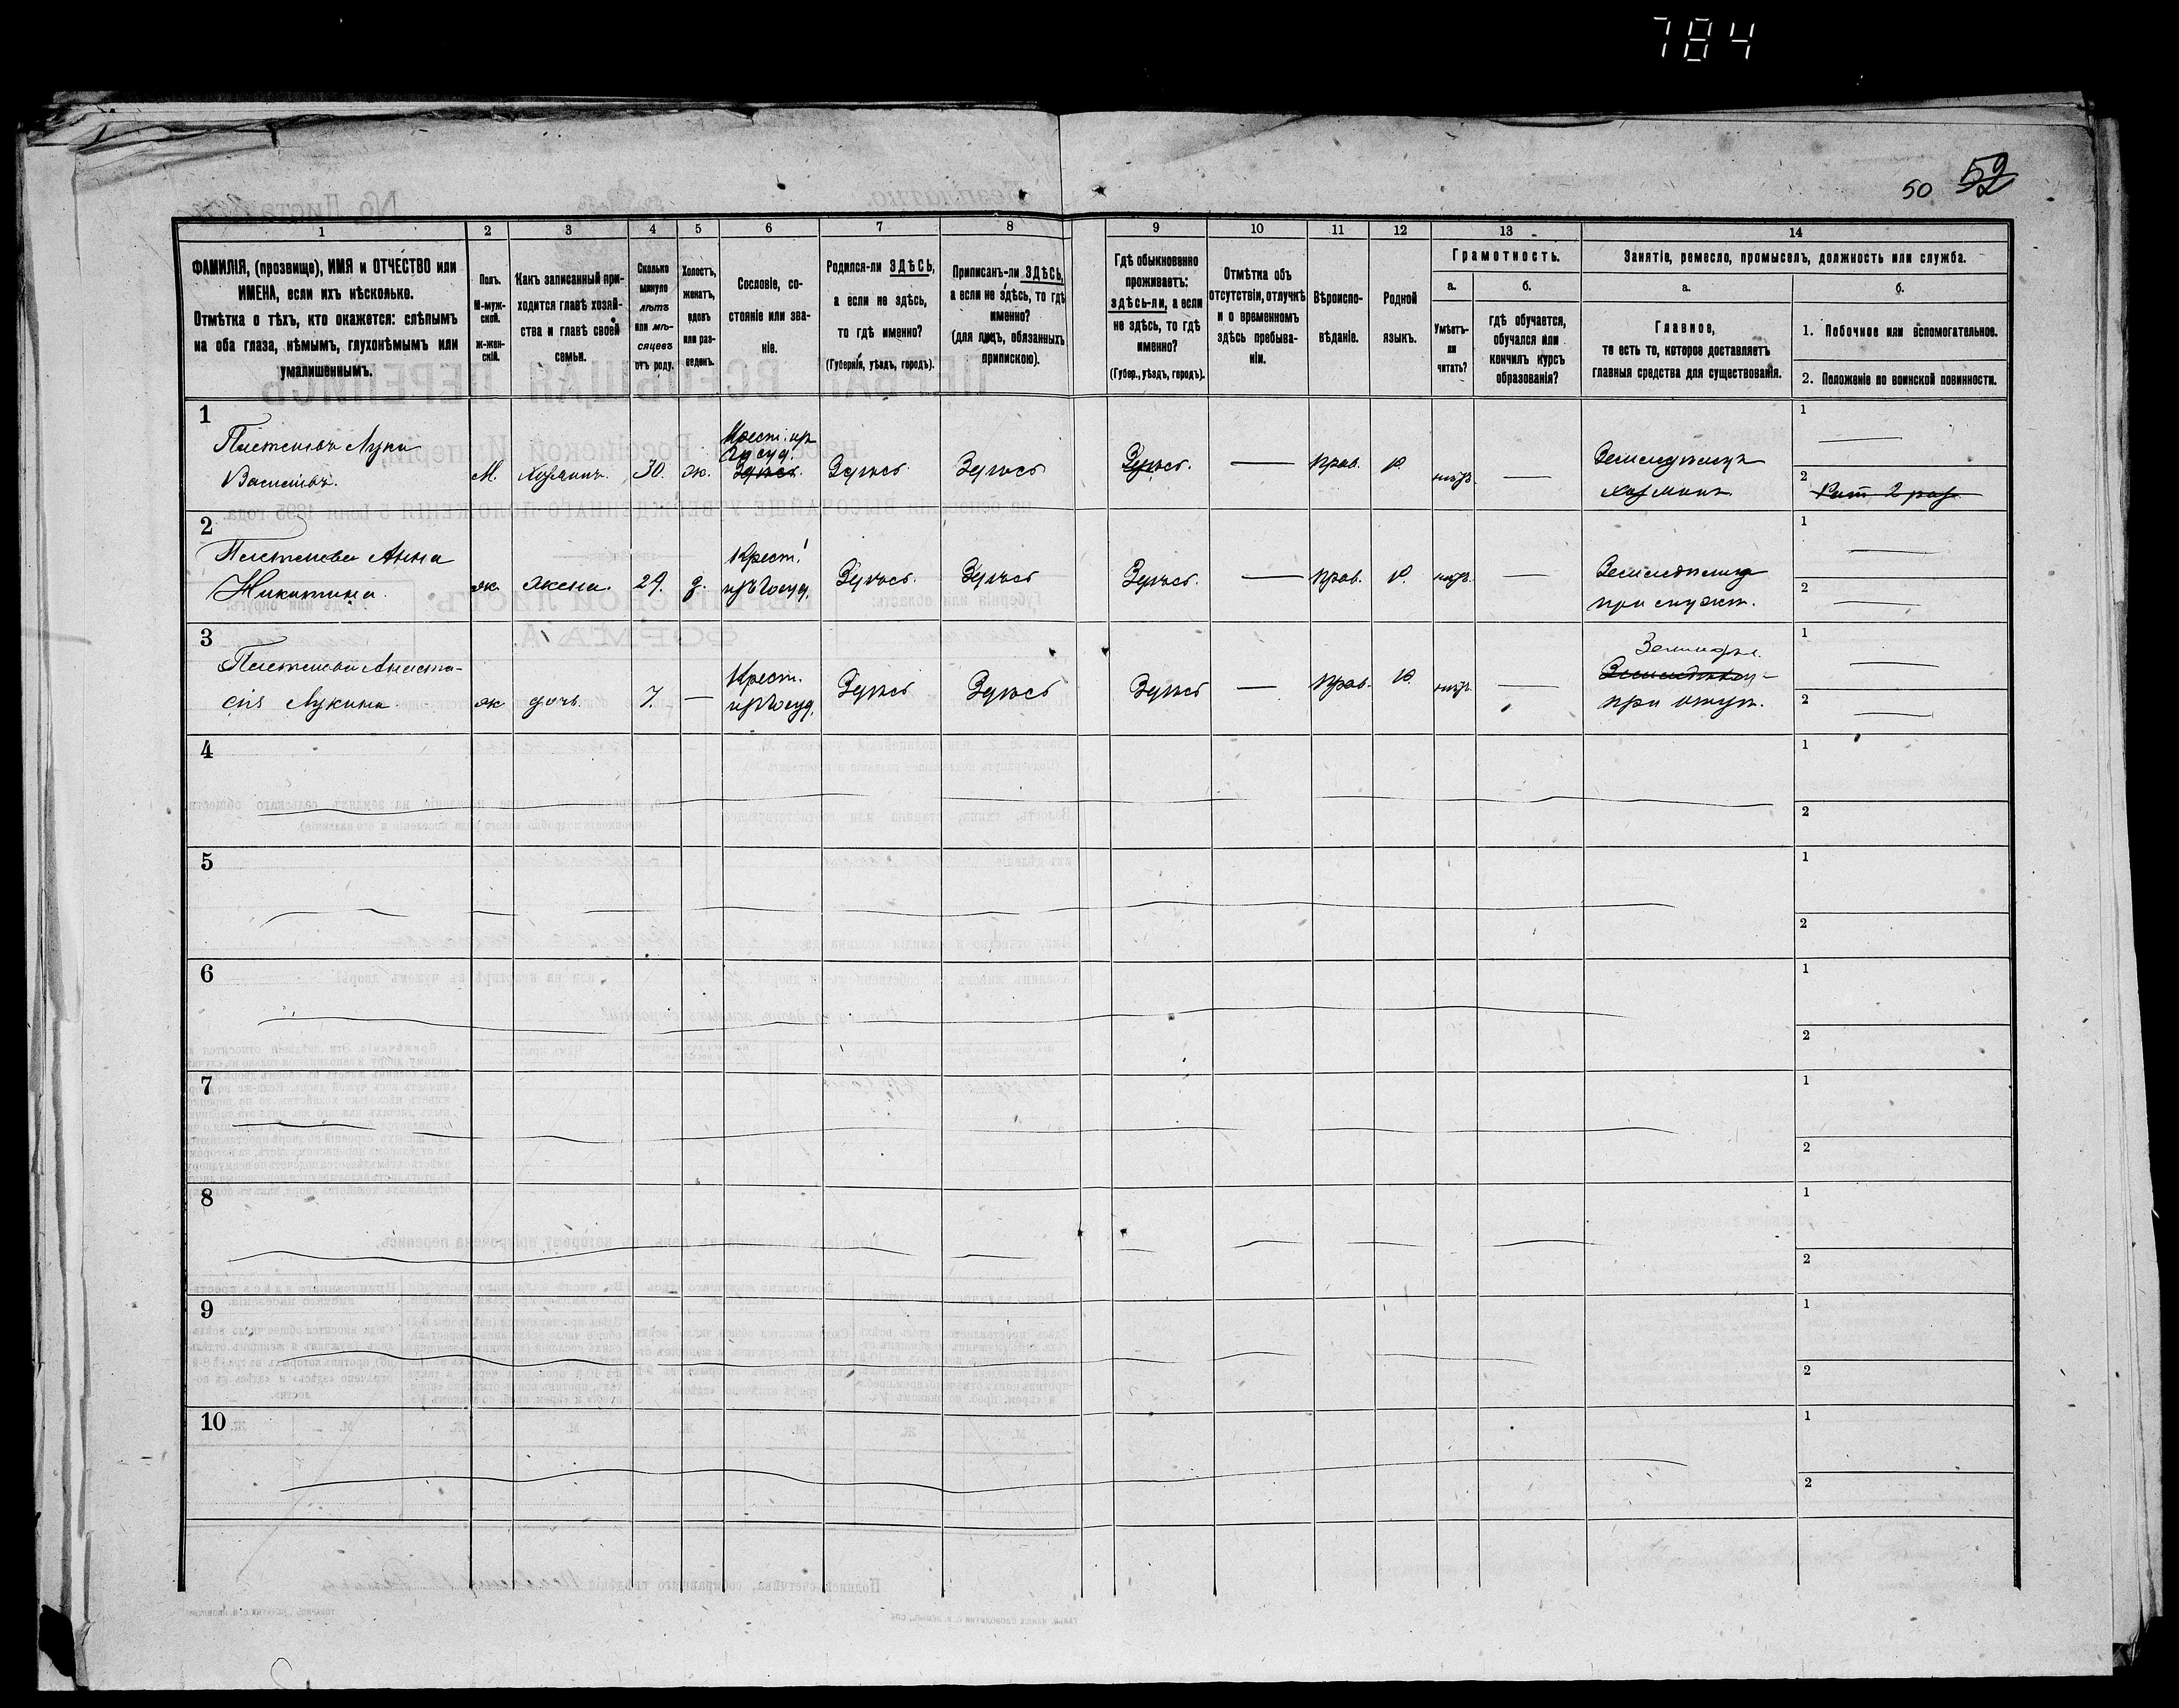 784
50 52
1 2 3 4 5 6 7 8 9 10 11 12 13 14
ФАМИЛІЯ, (прозвище), ИМЯ и ОТЧЕСТВО или
ИМЕНА, если ихъ нѣсколько.
Отмѣтка о тѣхъ, кто окажется: слѣпымъ
на оба глаза, нѣмымъ, глухонѣмымъ или
умалишеннымъ.
Полъ.
М-муж-
ской.
ж-жен-
скій.
Какъ записанный при-
ходится главѣ хозяй-
ства и главѣ своей
семьи.
Сколько
минуло
лѣтъ
или мѣ-
сяцевъ
отъ роду.
Холостъ,
женатъ,
вдовъ
или раз-
веденъ.
Сословіе, со-
стояніе или зва-
ніе.
Родился-ли ЗДѢСЬ,
а если не здѣсь,
то гдѣ именно?
(Губернія, уѣздъ, городъ).
Приписанъ-ли ЗДѢСЬ,
а если не здѣсь, то гдѣ
именно?
(для лицъ, обязанныхъ
припискою).
Гдѣ обыкновенно
проживаетъ:
здѣсь-ли, а если
не здѣсь, то гдѣ
именно?
(Губер., уѣздъ, городъ).
Отмѣтка объ
отсутствіи, отлучкѣ
и о временномъ
здѣсь пребыва-
ніи.
Вѣроиспо-
вѣданіе.
Родной
языкъ.
Грамотность.
а.
Умѣетъ-
ли
читать?
б.
гдѣ обучается,
обучался или
кончилъ курсъ
образованія?
Занятіе, ремесло, промыселъ, должность или служба.
а.
Главное,
то есть то, которое доставляетъ
главныя средства для существованія.
б.
1. Побочное или вспомогательное.
2. Положеніе по воинской повинности.
1
Лука
М. хозяинъ. 30. ж.
Крест. изъ
Госуд.
Здѣсь.
Здѣсь Здѣсь Здѣсь. — прав. р. нѣтъ —
Земледѣлецъ
хозяинъ.
1 —
2 Рат 2 раз.
2
Анна
Никитина.
ж. жена. 29. з.
Крест.
изъ Госуд.
Здѣсь. Здѣсь Здѣсь. — прав. р. нѣтъ —
1 —
2 —
при мужѣ.
3
Анаста-
сія Лукина
ж дочь. 7. —
Крест.
изъ Госуд.
Здѣсь Здѣсь Здѣсь — прав. р. нѣтъ —
при отцѣ.
1 —
2 —
4
1
2
5
1
2
6
1
2
7
1
2
8
1
2
9
1
2
10
1
2